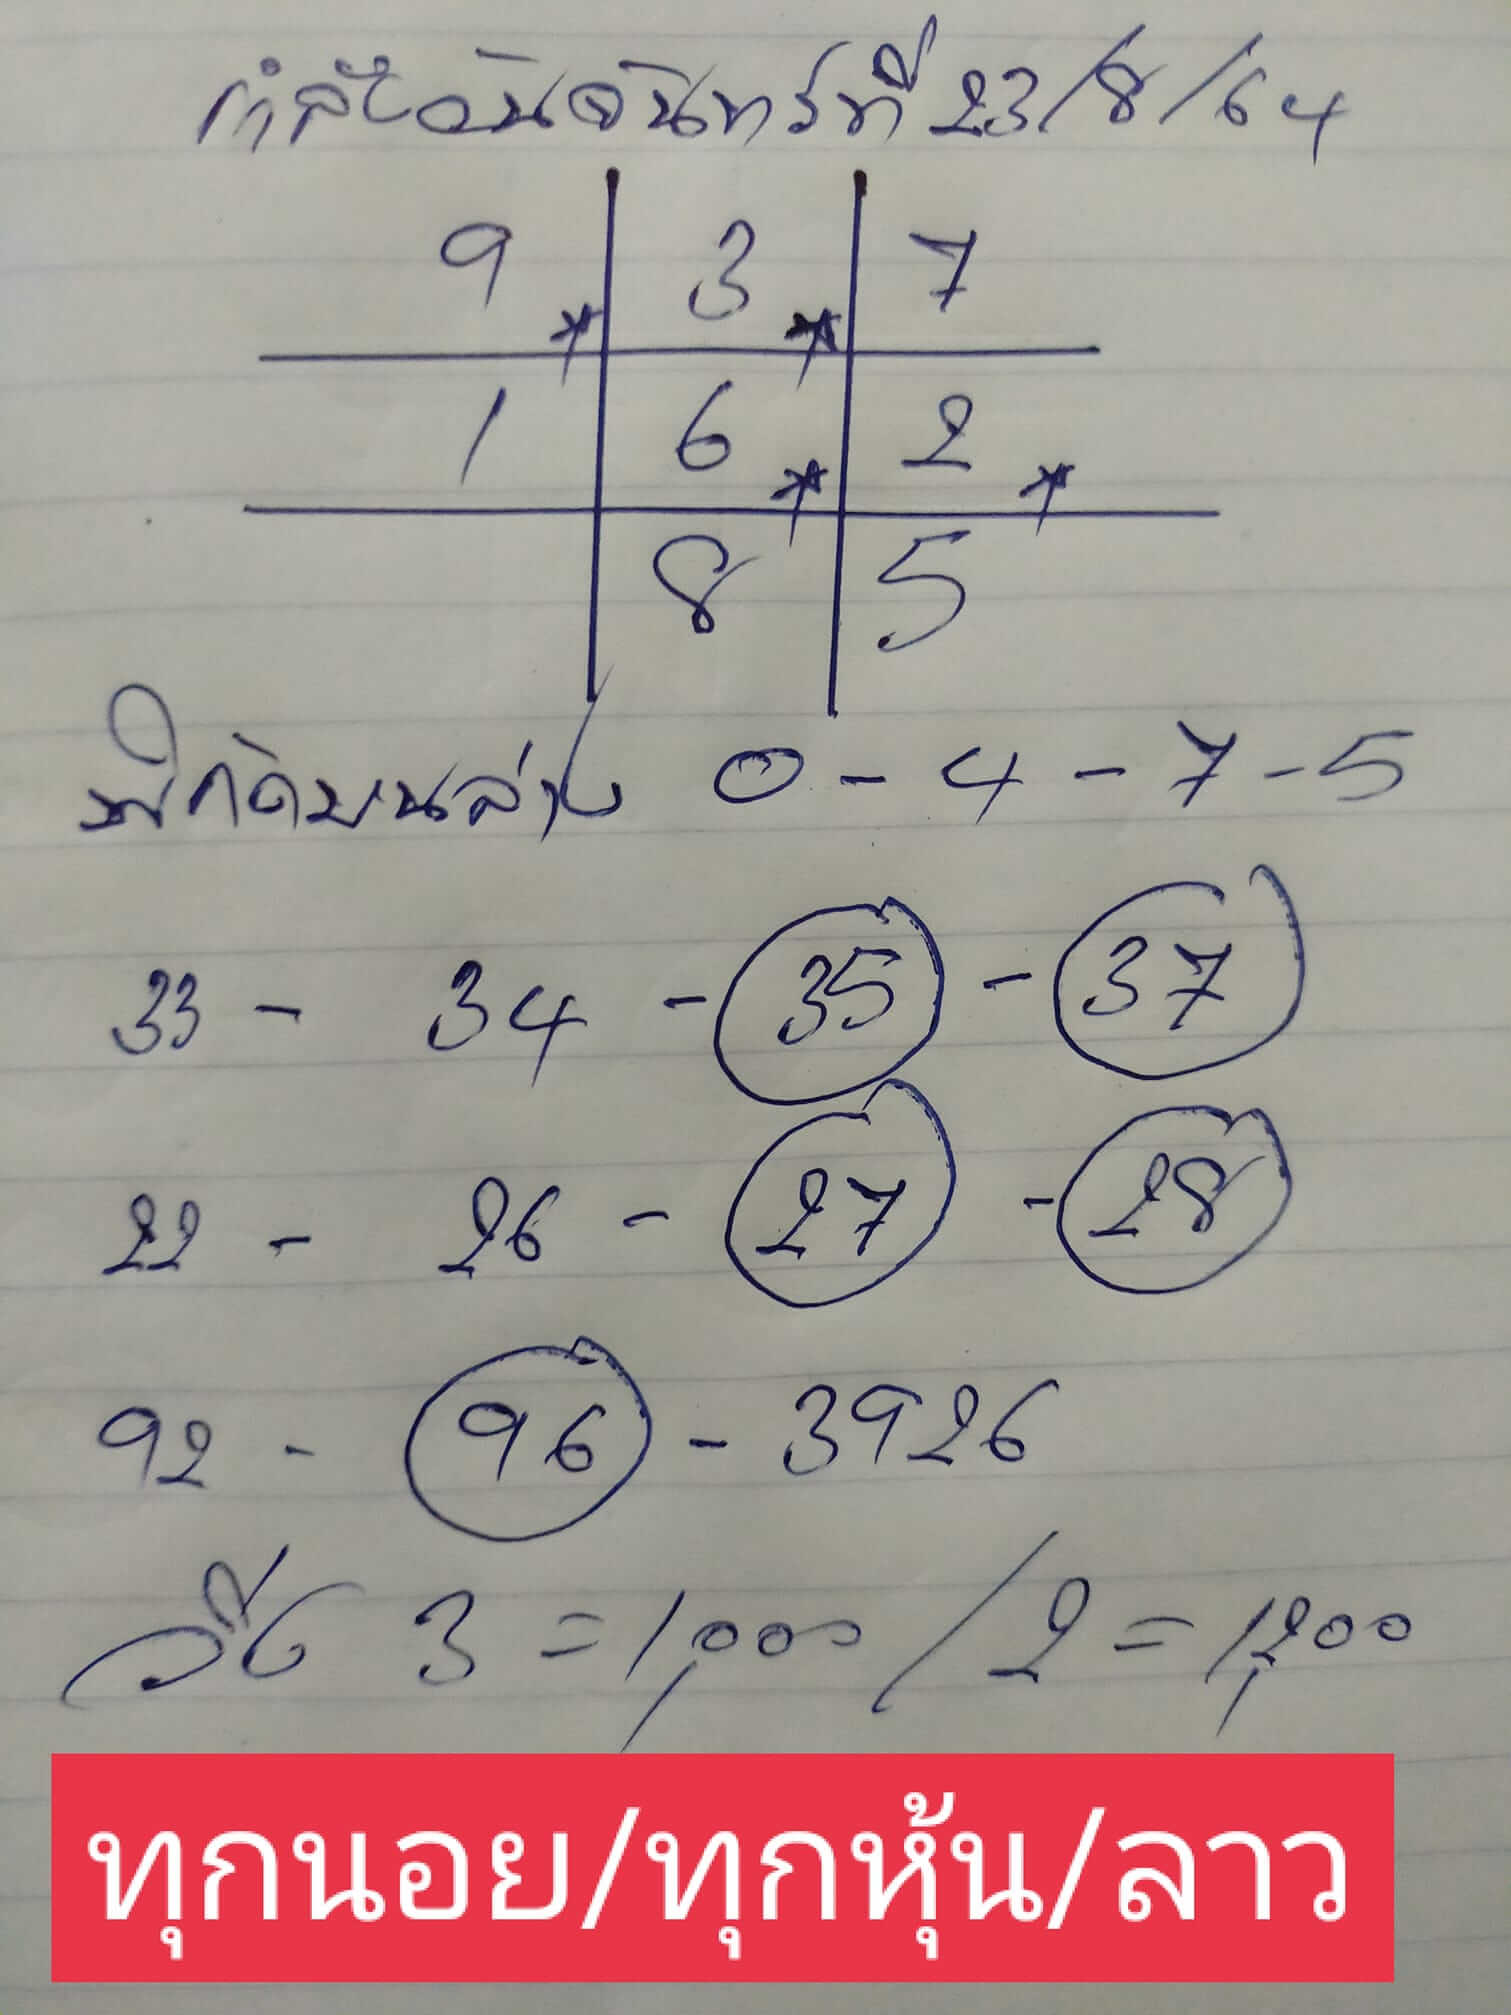 กำลังวันจันทร์ที่ 23/8/64
9 3 7
1 6 2
8 5
พิกัดบนล่าง 0-4-7-5
33 - 34 - 35 - 37
22 - 26 - 27 - 28
92 - 96 - 3926
วิ่ง 3=1,000/2=1,200
ทุกนอย/ทุกหุ้น/ลาว